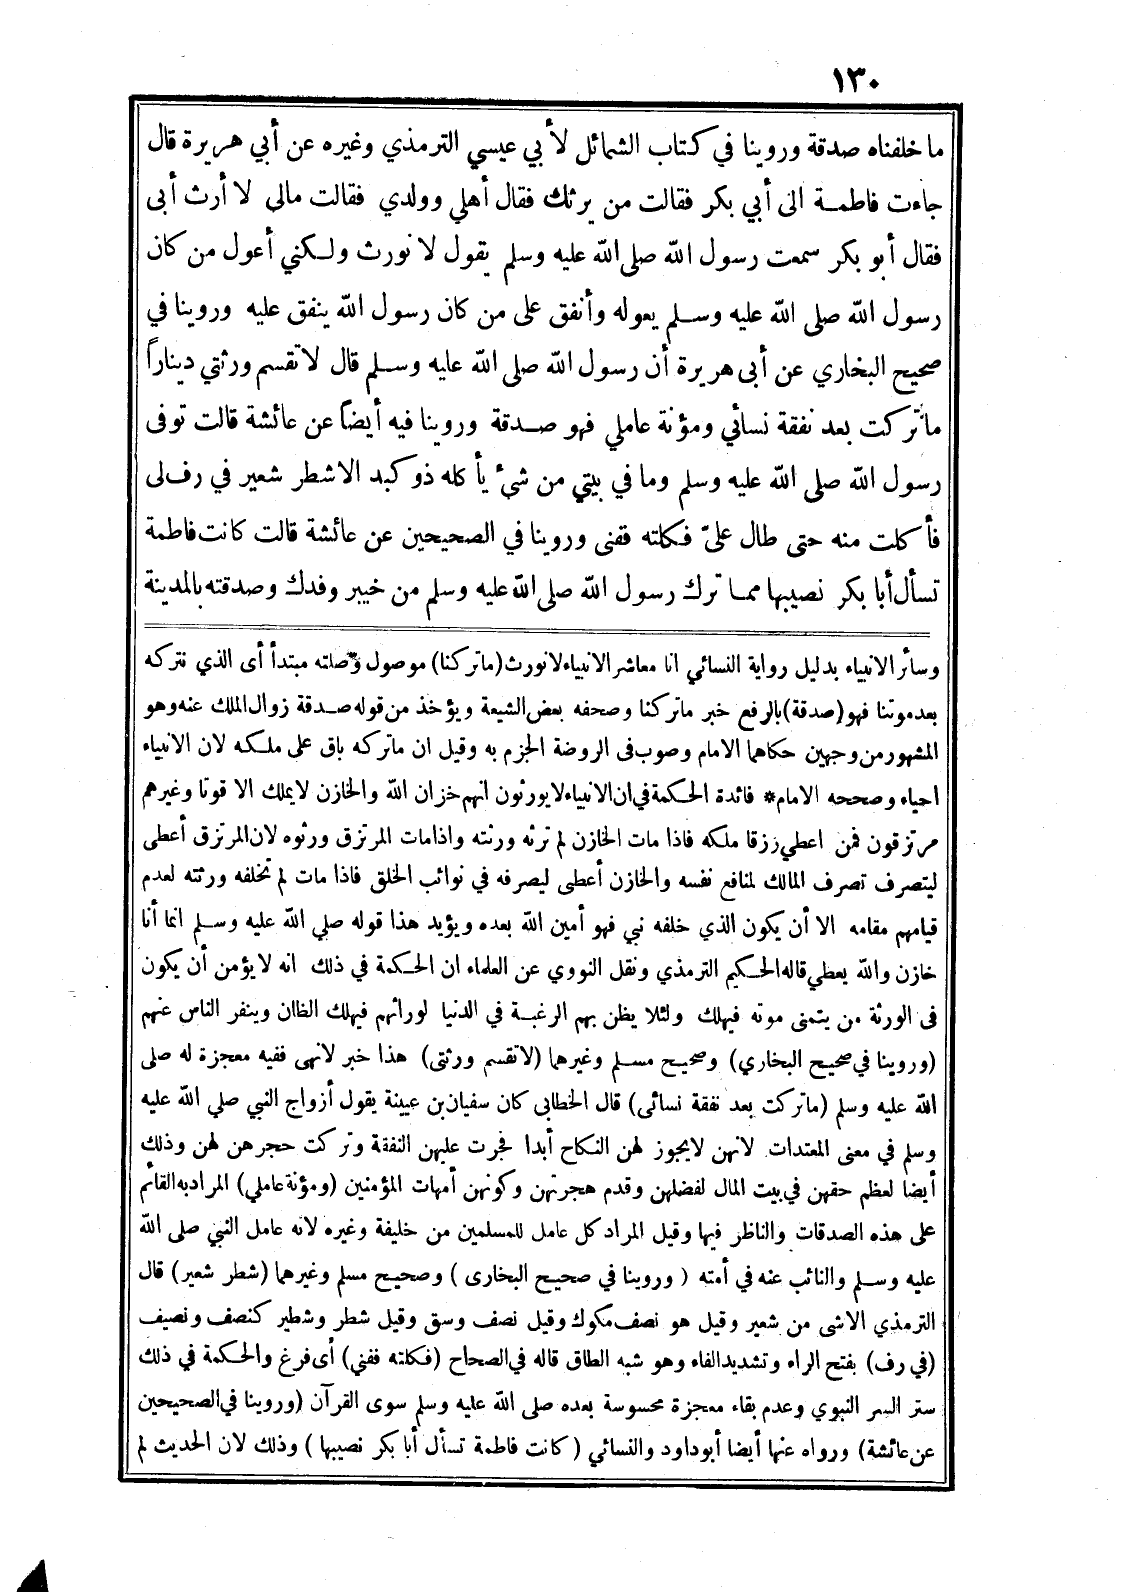 ١٣٠
ما خلفناه صدقة وروينا في كتاب الشمائل لأبي عيسي الترمذي وغيره عن أبي هريرة قال
جاءت فاطمة الى أبي بكر فقالت من يرثك فقال أهلي وولدي فقالت مالي لا أرث أبى
فقال أبو بكر سمعت رسول الله صلى الله عليه وسلم يقول لا نورث ولكني أعول من كان
رسول الله صلى الله عليه وسلم يعوله وأنفق على من كان رسول الله ينفق عليه وروينا في
صحيح البخاري عن أبى هريرة أن رسول الله صلى الله عليه وسلم قال لا تقسم ورثتي ديناراً
ما تركت بعد نفقة نسائي ومؤنة عاملي فهو صدقة وروينا فيه أيضاً عن عائشة قالت توفى
رسول الله صلى الله عليه وسلم وما في بيتي من شئ يأكله ذو كبد الا شطر شعير في رف لى
فأكلت منه حتى طال علىّ فكلته فقنى وروينا في الصحيحين عن عائشة قالت كانت فاطمة
تسأل أبا بكر نصيبها مما ترك رسول الله صلى الله عليه وسلم من خيبر وفدك وصدقته بالمدينة
وسائر الانبياء بدليل رواية النسائي انا معاشر الانبياء لا نورث (ما تركنا) موصول وصلته مبتدأ أى الذي نتركه
بعد موتنا فهو (صدقة) بالرفع خبر ما تركنا وصحفه بعض الشيعة ويؤخذ من قوله صدقة زوال الملك عنه وهو
المشهور من وجهين حكاهما الامام وصوب فى الروضة الجزم به وقيل ان ما تركه باق على ملكه لان الانبياء
احياء وصححه الامام* فائدة الحكمة في ان الانبياء لا يورثون انهم خزان الله والخازن لا يملك الا قوتا وغيرهم
مرتزقون فمن اعطي رزقا ملكه فاذا مات الخازن لم ترثه ورثته واذا مات المرتزق ورثوه لان المرتزق أعطى
ليتصرف تصرف المالك لمنافع نفسه والخازن أعطى ليصرفه في نوائب الخلق فاذا مات لم تخلفه ورثته لعدم
قيامهم مقامه الا أن يكون الذي خلفه نبي فهو أمين الله بعده ويؤيد هذا قوله صلي الله عليه وسلم انما أنا
خازن والله يعطي قاله الحكيم الترمذي ونقل النووي عن العلماء ان الحكمة في ذلك انه لا يؤمن أن يكون
فى الورثة من يتمنى موته فيهلك ولئلا يظن بهم الرغبة في الدنيا لوراثهم فيهلك الظان وينفر الناس عنهم
(وروينا في صحيح البخاري) وصحيح مسلم وغيرهما (لا تقسم ورثتى) هذا خبر لا نهى ففيه معجزة له صلى
الله عليه وسلم (ما تركت بعد نفقة نسائى) قال الخطابى كان سفيان بن عيينة يقول أزواج النبي صلي الله عليه
وسلم في معنى المعتدات لانهن لا يجوز لهن النكاح أبدا فجرت عليهن النفقة وتركت حجرهن لهن وذلك
أيضا لعظم حقهن في بيت المال لفضلهن وقدم هجرتهن وكونهن أمهات المؤمنين (ومؤنة عاملي) المراد به القائم
على هذه الصدقات والناظر فيها وقيل المراد كل عامل للمسلمين من خليفة وغيره لانه عامل النبي صلى الله
عليه وسلم والنائب عنه في أمته (وروينا في صحيح البخارى) وصحيح مسلم وغيرهما (شطر شعير) قال
الترمذي الاشى من شعير وقيل هو نصف مكوك وقيل نصف وسق وقيل شطر وشطير كنصف ونصيف
(في رف) بفتح الراء وتشديد الفاء وهو شبه الطاق قاله في الصحاح (فكلته ففني) أى فرغ والحكمة في ذلك
ستر السر النبوي وعدم بقاء معجزة محسوسة بعده صلى الله عليه وسلم سوى القرآن (وروينا في الصحيحين
عن عائشة) ورواه عنها أيضا أبو داود والنسائي (كانت فاطمة تسأل أبا بكر نصيبها) وذلك لان الحديث لم